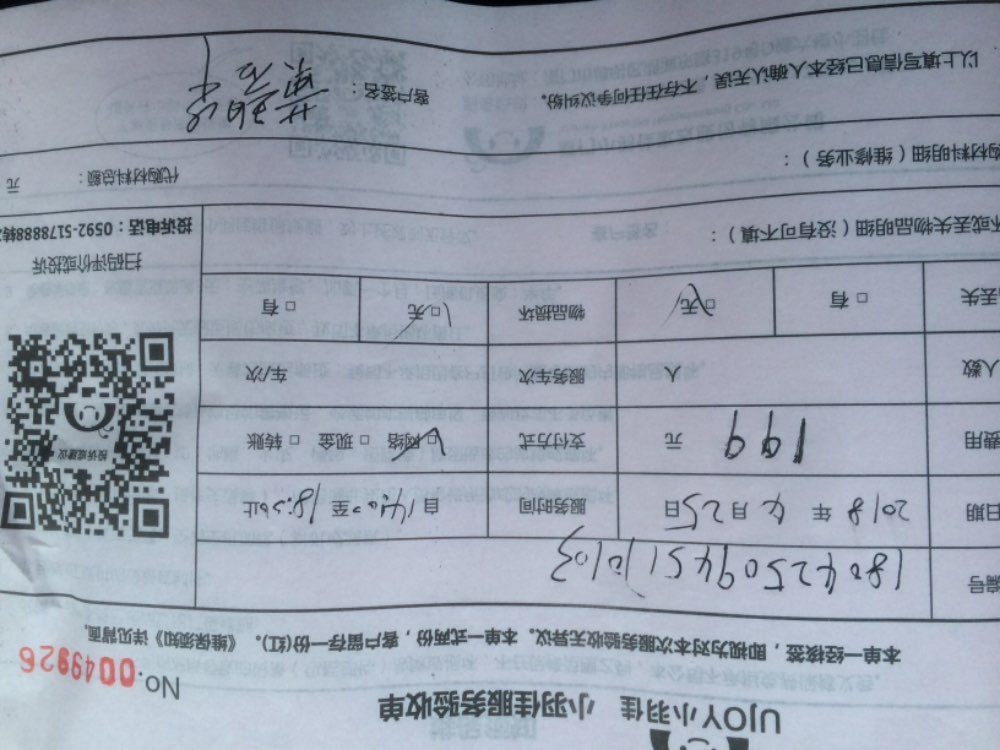 UJOY小羽佳 小羽佳服务验收单
No. 0049926
本单一经核签，即视为对本次服务验收无异议。本单一式两份，客户留存一份(红)。《维保须知》详见背面
编号 180425094511003
日期 2018年4月25日 服务时间 自14:00至18:30止
费用 199 元 支付方式 □网络 □现金 □转账
人数 人 服务车次 车/次
丢失 □有 □无 物品损坏 □无 □有
投诉或建议
扫码评价或投诉
投诉电话：0592-5178888转
坏或丢失物品明细（没有可不填）：
购材料明细（维修业务）：
代购材料总额： 元
以上填写信息已经本人确认无误，不存在任何争议纠纷。
客户签名：